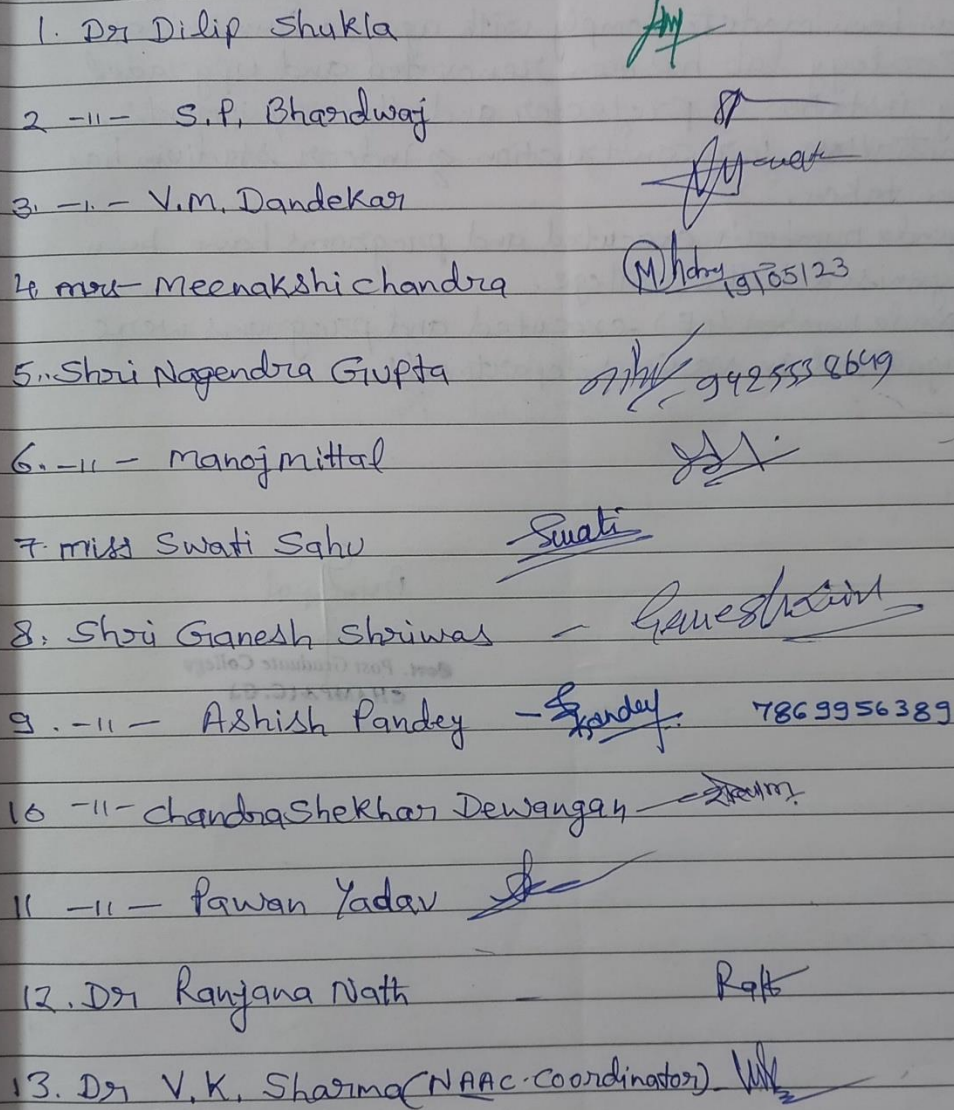 1. Dr Dilip Shukla
2 -11- S.P. Bhardwaj
3. -11- V.M. Dandekar
4. mrs Meenakshi chandra 19/05/23
5. Shri Nagendra Gupta 9425538649
6. -11- Manoj mittal
7. miss Swati Sahu Swati
8. Shri Ganesh Shriwas -
9. -11- Ashish Pandey - Pandey. 7869956389
10 -11- Chandrashekhar Dewangan
11 -11- Pawan Yadav
12. Dr Ranjana Nath -
13. Dr V.K. Sharma (NAAC-Coordinator)